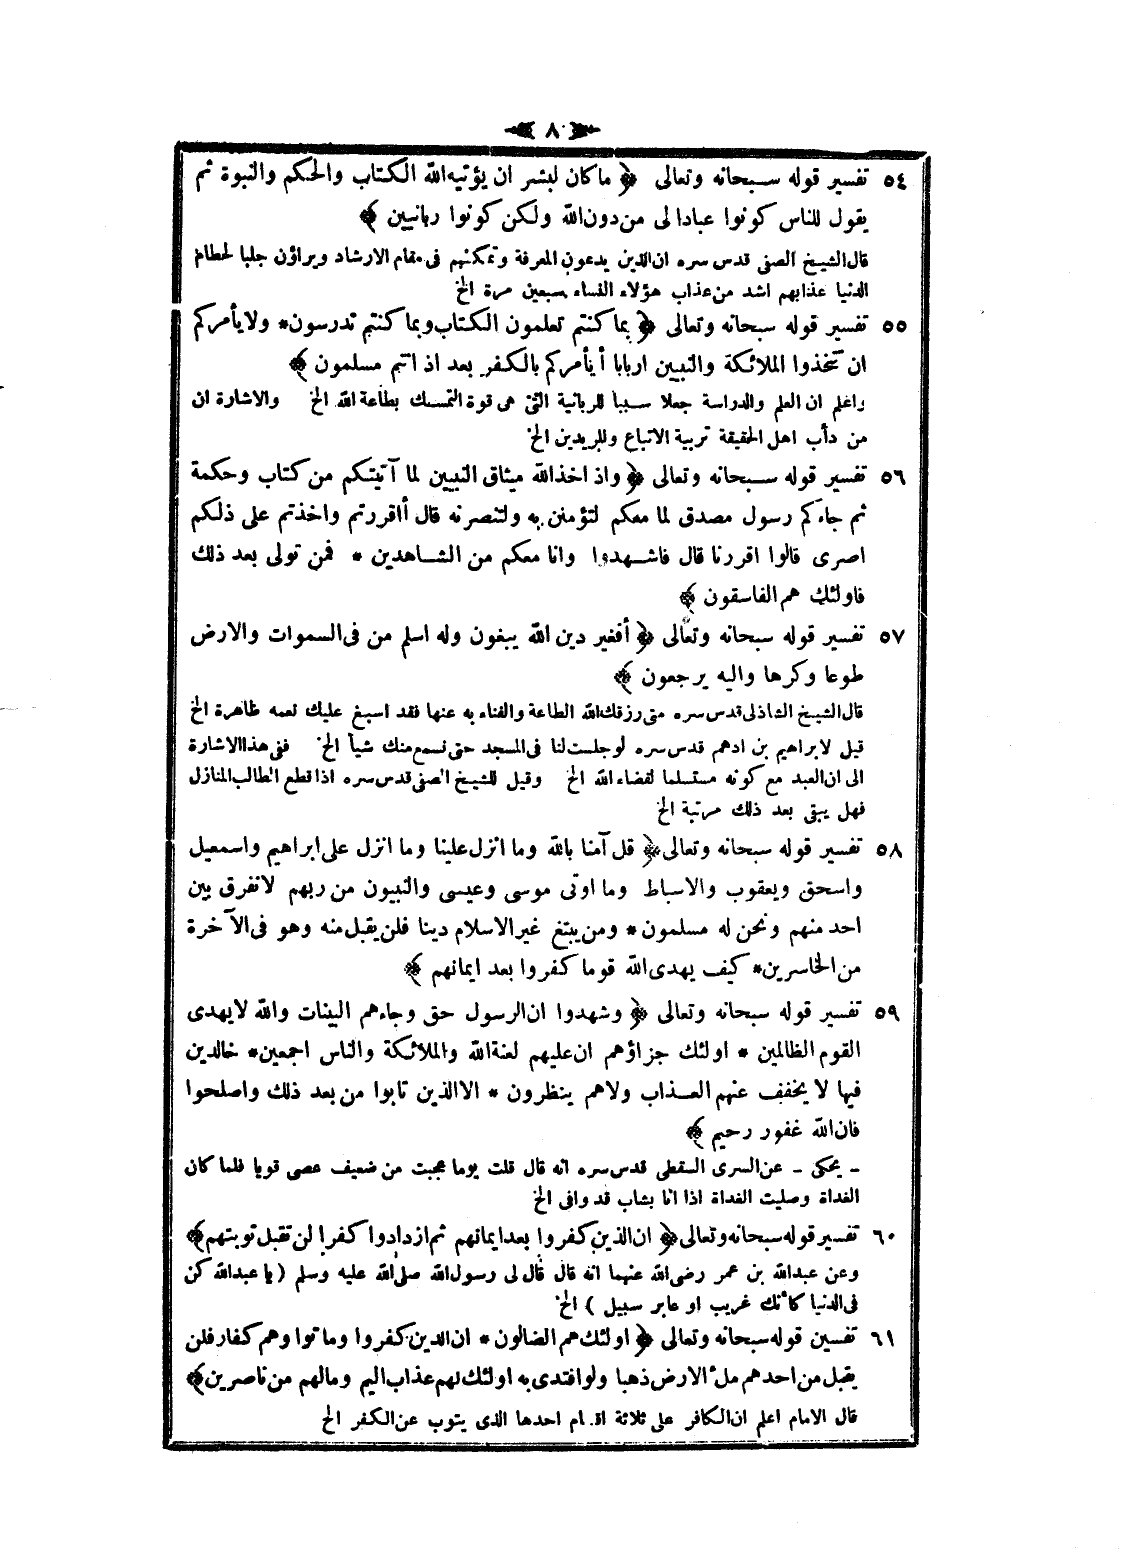 ٨
٥٤ تفسير قوله سبحانه وتعالى ﴿ ما كان لبشر ان يؤتيه الله الكتاب والحكم والنبوة ثم
يقول للناس كونوا عبادا لى من دون الله ولكن كونوا ربانيين ﴾
قال الشيخ الصفى قدس سره ان الذين يدعون المعرفة وتمكنهم فى مقام الارشاد ويراؤن جلبا لحطام
الدنيا عذابهم اشد من عذاب هؤلاء النساء سبعين مرة الخ
٥٥ تفسير قوله سبحانه وتعالى ﴿ بما كنتم تعلمون الكتاب وبما كنتم تدرسون * ولا يأمركم
ان تتخذوا الملائكة والنبيين اربابا أيأمركم بالكفر بعد اذ انتم مسلمون ﴾
واعلم ان العلم والدراسة جعلا سببا للربانية التى هى قوة التمسك بطاعة الله الخ والاشارة ان
من دأب اهل الحقيقة تربية الاتباع والمريدين الخ
٥٦ تفسير قوله سبحانه وتعالى ﴿ واذ اخذ الله ميثاق النبيين لما آتيتكم من كتاب وحكمة
ثم جاءكم رسول مصدق لما معكم لتؤمنن به ولتنصرنه قال أاقررتم واخذتم على ذلكم
اصرى قالوا اقررنا قال فاشهدوا وانا معكم من الشاهدين * فمن تولى بعد ذلك
فاولئك هم الفاسقون ﴾
٥٧ تفسير قوله سبحانه وتعالى ﴿ أفغير دين الله يبغون وله اسلم من فى السموات والارض
طوعا وكرها واليه يرجعون ﴾
قال الشيخ الشاذلى قدس سره متى رزقك الله الطاعة والفناء به عنها فقد اسبغ عليك نعمه ظاهرة الخ
قيل لابراهيم بن ادهم قدس سره لو جلست لنا فى المسجد حتى نسمع منك شيأ الخ ففى هذا الاشارة
الى ان العبد مع كونه مستسلما لقضاء الله الخ وقيل للشيخ الصفى قدس سره اذا قطع الطالب المنازل
فهل يبقى بعد ذلك مرتبة الخ
٥٨ تفسير قوله سبحانه وتعالى ﴿ قل آمنا بالله وما انزل علينا وما انزل على ابراهيم واسمعيل
واسحق ويعقوب والاسباط وما اوتى موسى وعيسى والنبيون من ربهم لا نفرق بين
احد منهم ونحن له مسلمون * ومن يبتغ غير الاسلام دينا فلن يقبل منه وهو فى الآخرة
من الخاسرين * كيف يهدى الله قوما كفروا بعد ايمانهم ﴾
٥٩ تفسير قوله سبحانه وتعالى ﴿ وشهدوا ان الرسول حق وجاءهم البينات والله لا يهدى
القوم الظالمين * اولئك جزاؤهم ان عليهم لعنة الله والملائكة والناس اجمعين * خالدين
فيها لا يخفف عنهم العذاب ولاهم ينظرون * الا الذين تابوا من بعد ذلك واصلحوا
فان الله غفور رحيم ﴾
ـ يحكى ـ عن السرى السقطى قدس سره انه قال قلت يوما عجبت من ضعيف عصى قويا فلما كان
الغداة وصليت الغداة اذا انا بشاب قد وافى الخ
٦٠ تفسير قوله سبحانه وتعالى ﴿ ان الذين كفروا بعد ايمانهم ثم ازدادوا كفرا لن تقبل توبتهم ﴾
وعن عبدالله بن عمر رضى الله عنهما انه قال قال لى رسول الله صلى الله عليه وسلم ( يا عبدالله كن
فى الدنيا كأنك غريب او عابر سبيل ) الخ
٦١ تفسين قوله سبحانه وتعالى ﴿ اولئك هم الضالون * ان الذين كفروا وماتوا وهم كفار فلن
يقبل من احدهم ملأ الارض ذهبا ولو افتدى به اولئك لهم عذاب اليم ومالهم من ناصرين ﴾
قال الامام اعلم ان الكافر على ثلاثة اقسام احدها الذى يتوب عن الكفر الخ